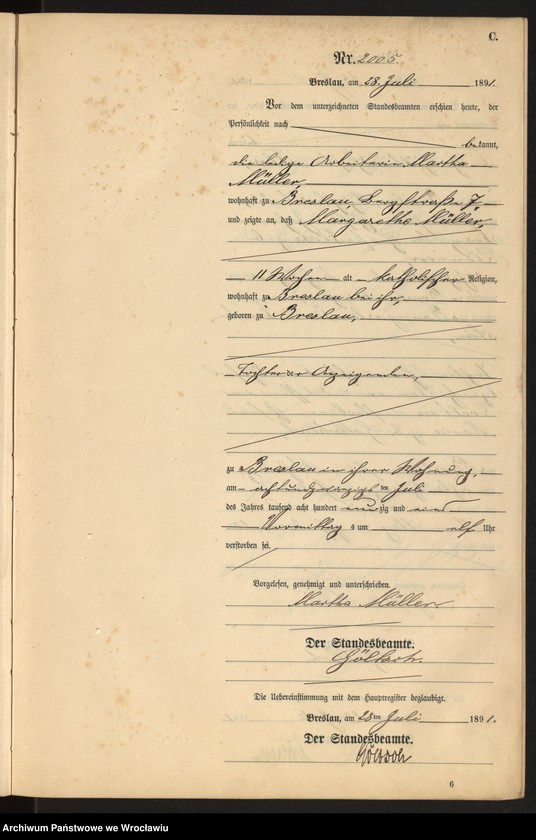 C.
Nr. 2005.
Breslau, am 28. Juli 1891.
Vor dem unterzeichneten Standesbeamten erschien heute, der
Persönlichkeit nach
bekannt,
die ledige Arbeiterin Martha
Müller,
wohnhaft zu Breslau, Bergstraße 7,
und zeigte an, daß Margarethe Müller,
11 Wochen alt katholischer Religion,
wohnhaft zu Breslau bei ihr,
geboren zu Breslau,
Tochter der Anzeigenden,
zu Breslau in ihrer Wohnung,
am achtundzwanzigsten Juli
des Jahres tausend acht hundert neunzig und eins
Vormittags um elf Uhr
verstorben sei.
Vorgelesen, genehmigt und unterschrieben.
Martha Müller
Der Standesbeamte.
Die Uebereinstimmung mit dem Hauptregister beglaubigt.
Breslau, am 28ten Juli 1891.
Der Standesbeamte.
6
Archiwum Państwowe we Wrocławiu